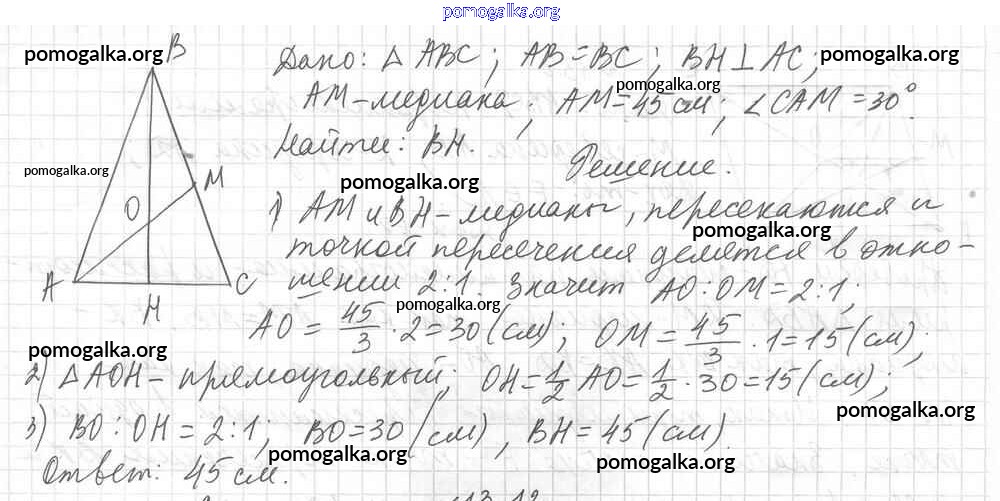 pomogalka.org
pomogalka.org
B
Дано: △ ABC; AB=BC; BH⊥AC;
pomogalka.org
pomogalka.org
AM-медиана; AM=45 см; ∠CAM=30°.
Найти: BH.
Решение.
pomogalka.org
pomogalka.org
M
O
A
C
H
1) AM и BH-медианы, пересекаются и
pomogalka.org
точкой пересечения делятся в отно-
шении 2:1. Значит AO:OM=2:1;
pomogalka.org
AO = 45/3 · 2=30(см); OM = 45/3 · 1=15(см);
pomogalka.org
2) △AOH-прямоугольный; OH=1/2 AO=1/2 · 30=15(см);
pomogalka.org
3) BO:OH=2:1; BO=30(см), BH=45(см).
pomogalka.org
pomogalka.org
Ответ: 45 см.